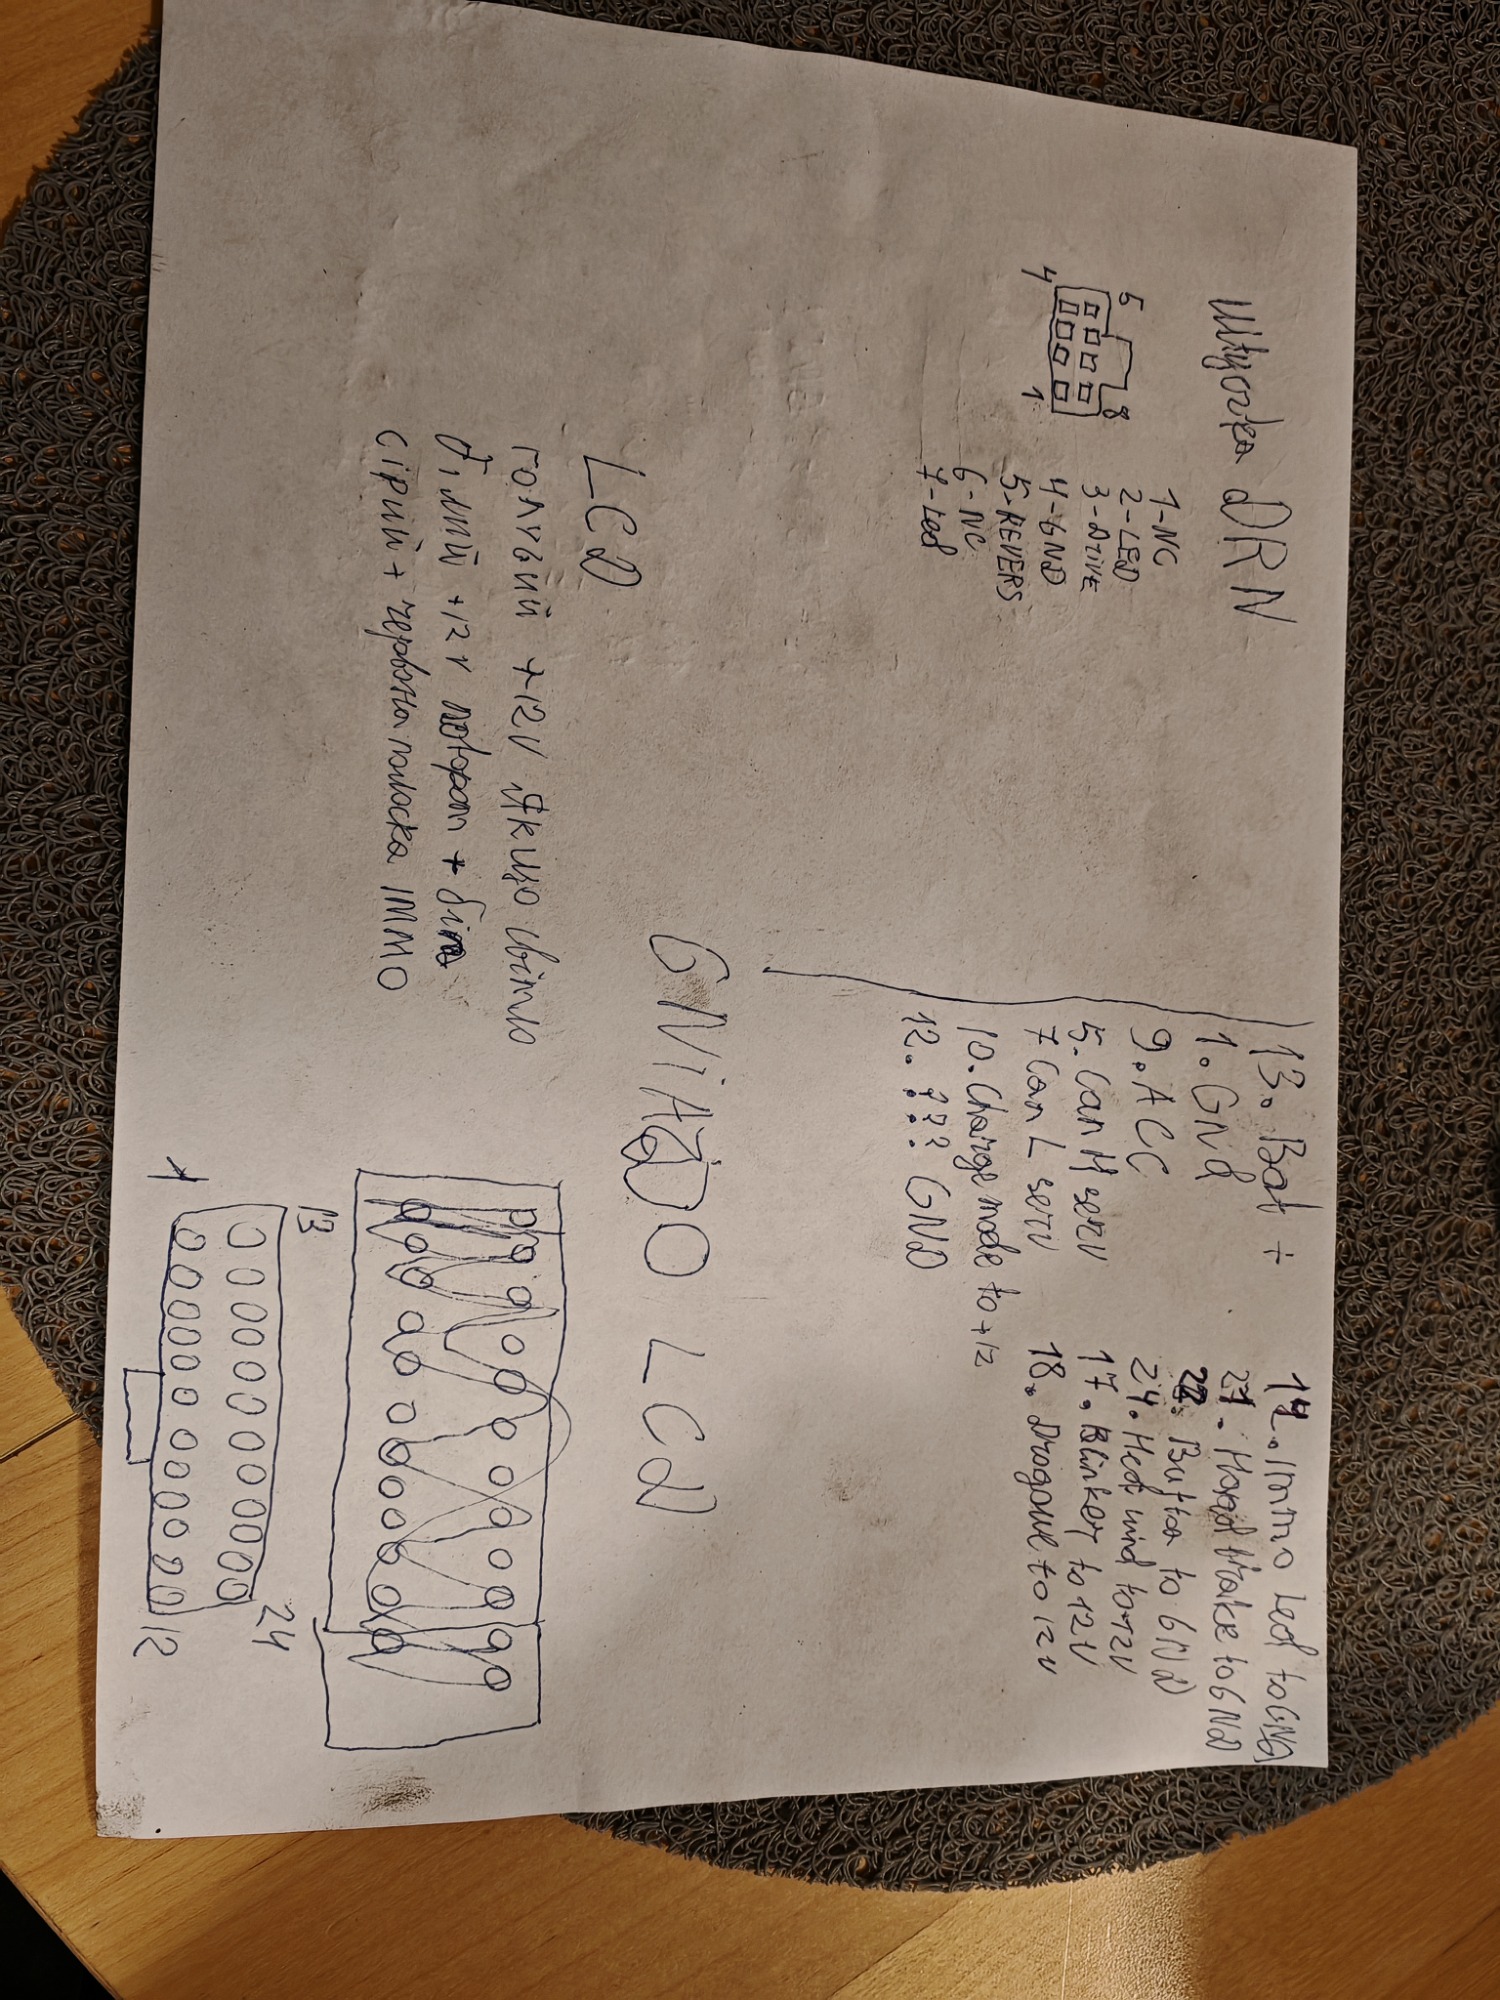 Wtyczka DRN
5
8
4
1
1-NC
2-LED
3-Drive
4-GND
5-REVERS
6-NC
7-Led
13. Bat +
1. GNd
9. ACC
5. Can H serv
7 Can L serv
10. Charge mode to +12
12. ??? GND
14. immo Led to GNd
21. Hand brake to GNd
22. Button to GND
24. Hed wind to +12V
17. Blinker to 12V
18. to 12V
LCD
голубий +12V Якщо світло
білий +12V поворот +
сірий + червона полоска IMMO
GNiAZDO LCD
13
24
1
12